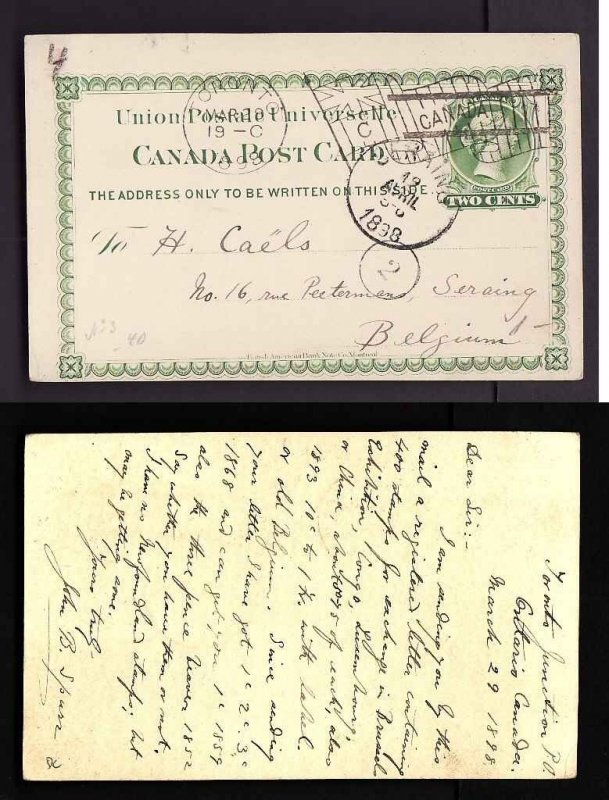 4
TORONTO
MAR 29
19 - C
CANADA
C
Union Postale Universelle.
CANADA POST CARD
THE ADDRESS ONLY TO BE WRITTEN ON THIS SIDE.
TWO CENTS
SERAING
12
AVRIL
1898
To H. Caëls
2
No. 16, rue Peeterman, Seraing
Belgium
No 3
40
British American Bank Note Co. Montreal
Toronto Junction P.O.
Ontario Canada.
March 29 1898
Dear Sir:-
I am sending you by this
mail a registered letter containing
400 stamps for exchange in Brussels
Exhibition, Congo, Luxembourg
or China, about 75 of each, also
1893 10c to 1 fr. with label.
or old Belgium. Since sending
your letter I have got 1c 2c 3c
1868 and can get you 1c 1859
also the three pence beaver 1852
Say whether you have them or not.
I have no Newfoundland stamps, but
may be getting some.
Yours truly
John B. Spurr